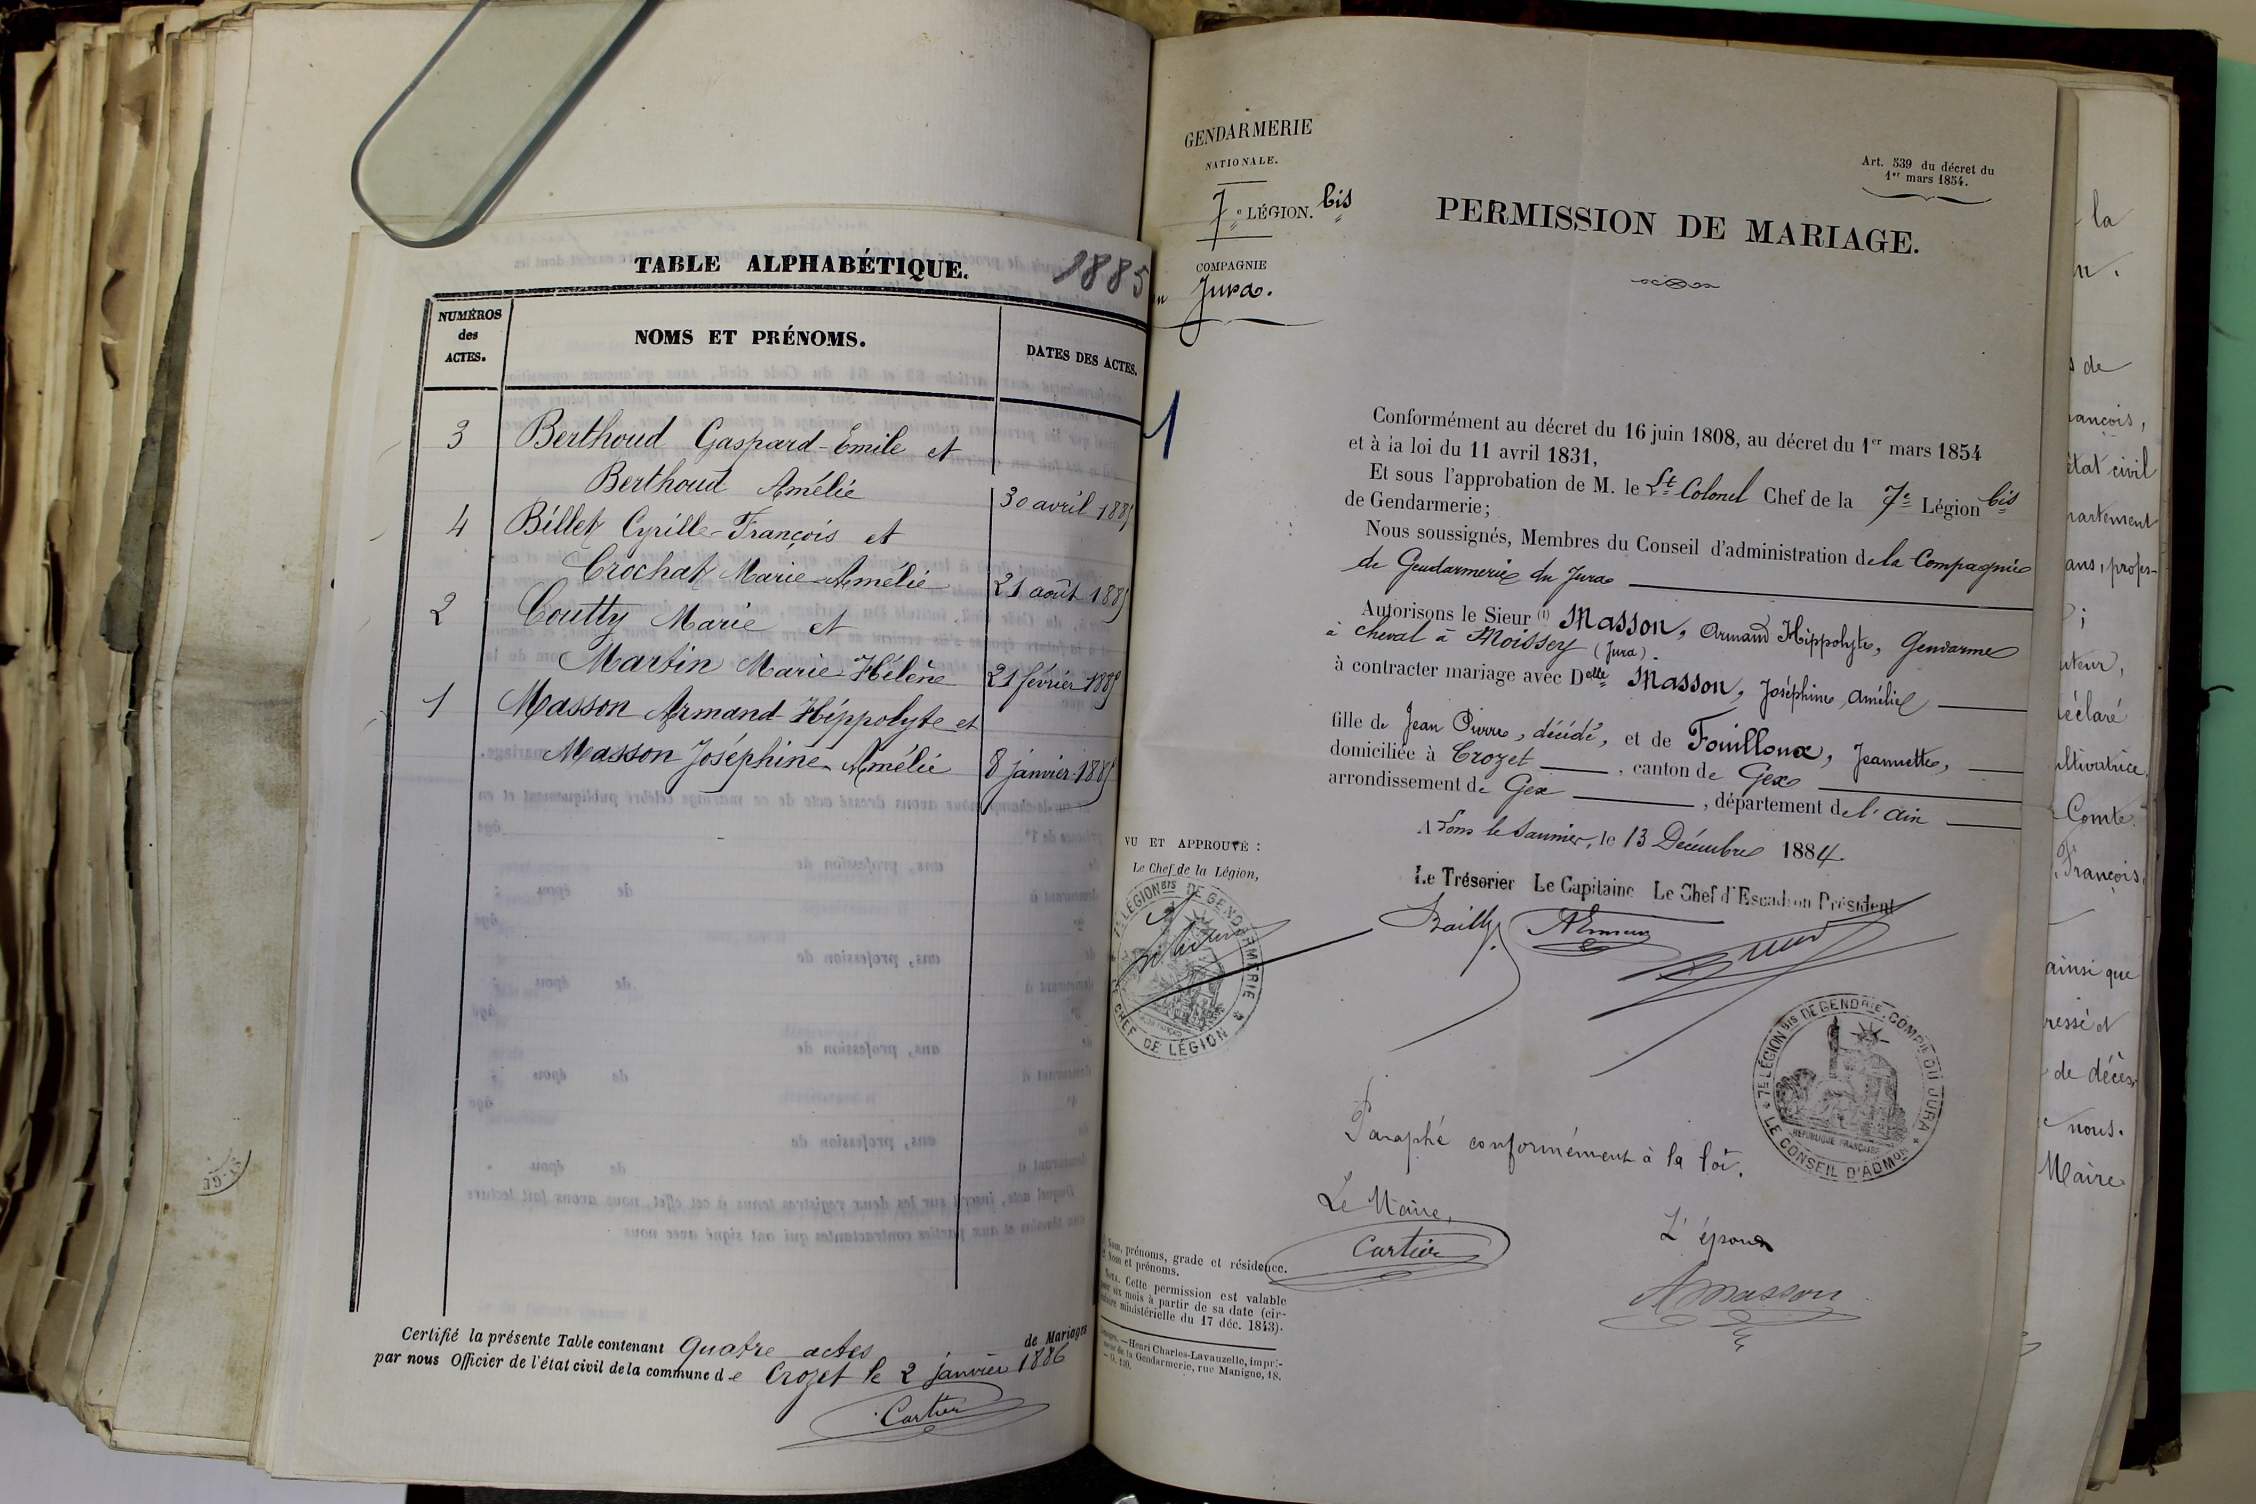 TABLE ALPHABÉTIQUE.
1885
NUMÉROS
des
ACTES.
NOMS ET PRÉNOMS.
DATES DES ACTES.
3 Berthoud Gaspard-Emile et
Berthoud Amélie 30 avril 1885
4 Billet Cyrille-François et
Crochat Marie-Amélie 21 août 1885
2 Coutty Marie et
Martin Marie-Hélène 21 février 1885
1 Masson Armand-Hippolyte et
Masson Joséphine-Amélie 8 janvier 1885
Certifié la présente Table contenant quatre actes de Mariages
par nous Officier de l'état civil de la commune de Crozet le 2 janvier 1886
Cartier
GENDARMERIE
NATIONALE.
7e LÉGION. bis
COMPAGNIE
Jura.
1
Art. 539 du décret du
1er mars 1854.
PERMISSION DE MARIAGE.
Conformément au décret du 16 juin 1808, au décret du 1er mars 1854
et à la loi du 11 avril 1831,
Et sous l'approbation de M. le Lt Colonel Chef de la 7e Légion bis
de Gendarmerie;
Nous soussignés, Membres du Conseil d'administration de la Compagnie
de Gendarmerie du Jura
Autorisons le Sieur (1) Masson, Armand Hippolyte, Gendarme
à cheval à Moissey (Jura).
à contracter mariage avec Delle Masson, Joséphine, Amélie
fille de Jean Pierre, décédé, et de Fouilloux, Jeannette,
domiciliée à Crozet, canton de Gex
arrondissement de Gex, département de l'Ain
A Lons le Saunier, le 13 Décembre 1884.
VU ET APPROUVÉ :
Le Chef de la Légion,
7E LÉGION BIS DE GENDARMERIE
CHEF DE LÉGION
Le Trésorier Le Capitaine Le Chef d'Escadron Président
Bailly
7E LÉGION BIS DE GENDRIE, COMPIE DU JURA
RÉPUBLIQUE FRANÇAISE
LE CONSEIL D'ADMON
Paraphé conformément à la loi.
Le Maire,
Cartier
L'époux
A Masson
Nom, prénoms, grade et résidence.
Nom et prénoms.
Nota. Cette permission est valable
six mois à partir de sa date (cir-
ministérielle du 17 déc. 1843).
Henri Charles-Lavauzelle, impri-
de la Gendarmerie, rue Manigne, 18.
la
de
état civil
ans, profes-
Comte
François,
ainsi que
de décès,
nous.
Maire